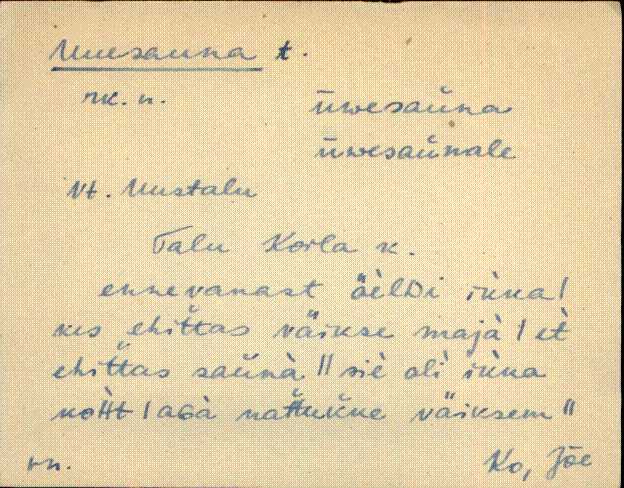 Uuesauna t.
rk. n. ūwesaŭna
ūwesaŭnale
Vt. Uustalu
Talu Korla k.
ennevanast öèlDi iǹna /
kes ehittas väikse majà / et̀
ehittas saŭnà // siè olì iǹna
/ aGà nattukne väiksem //
vn. Ko, Jõe